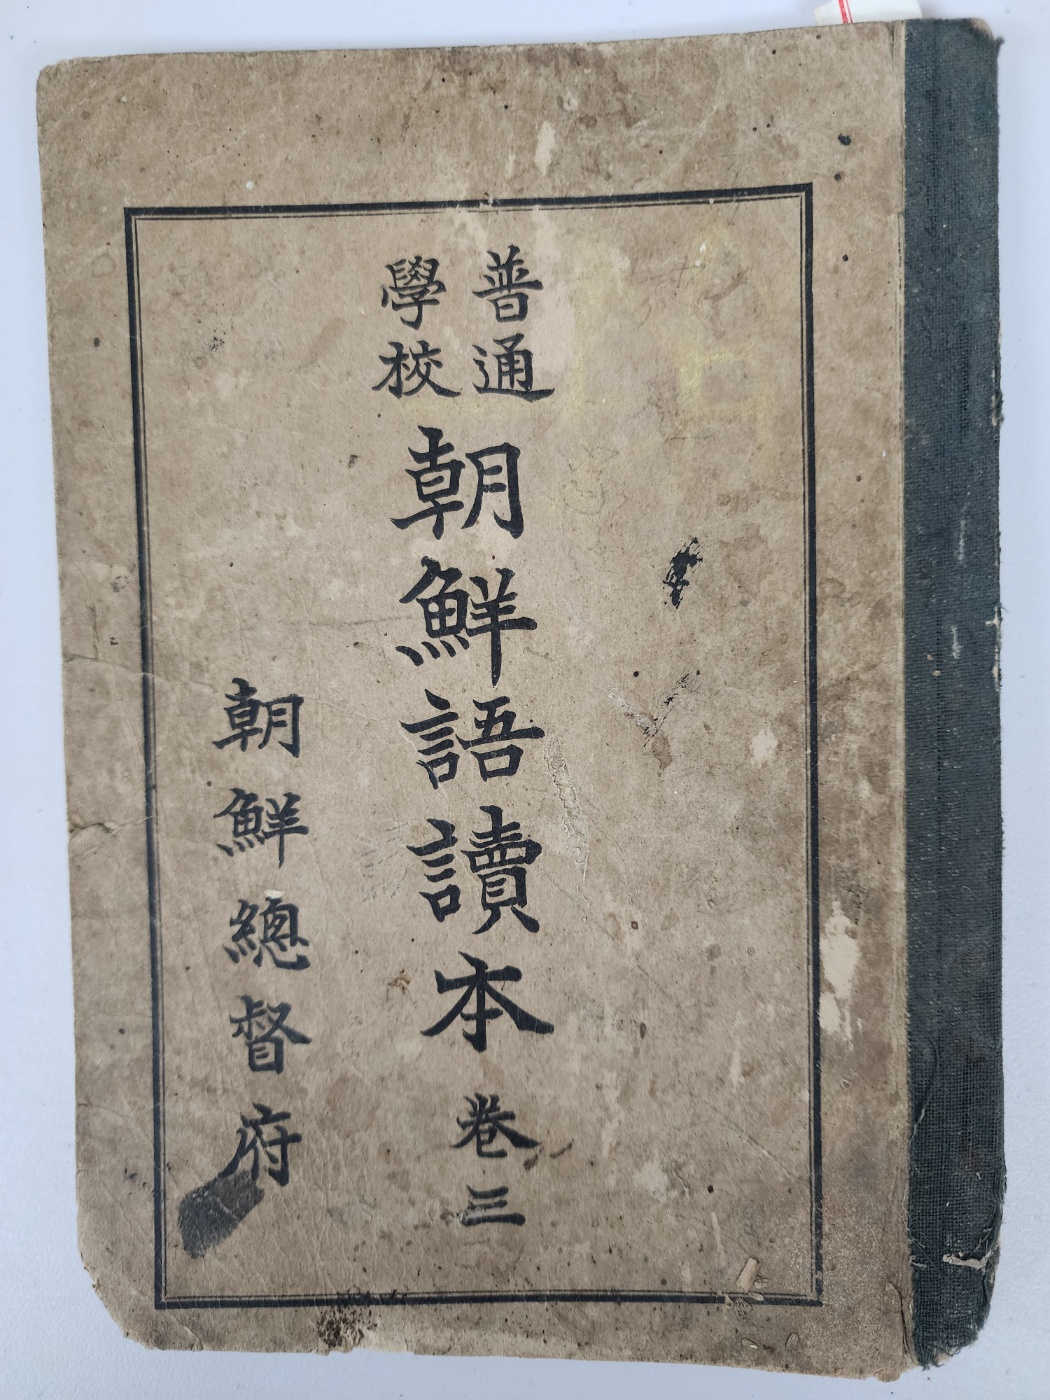 普通
學校
朝鮮語讀本 卷三
朝鮮總督府